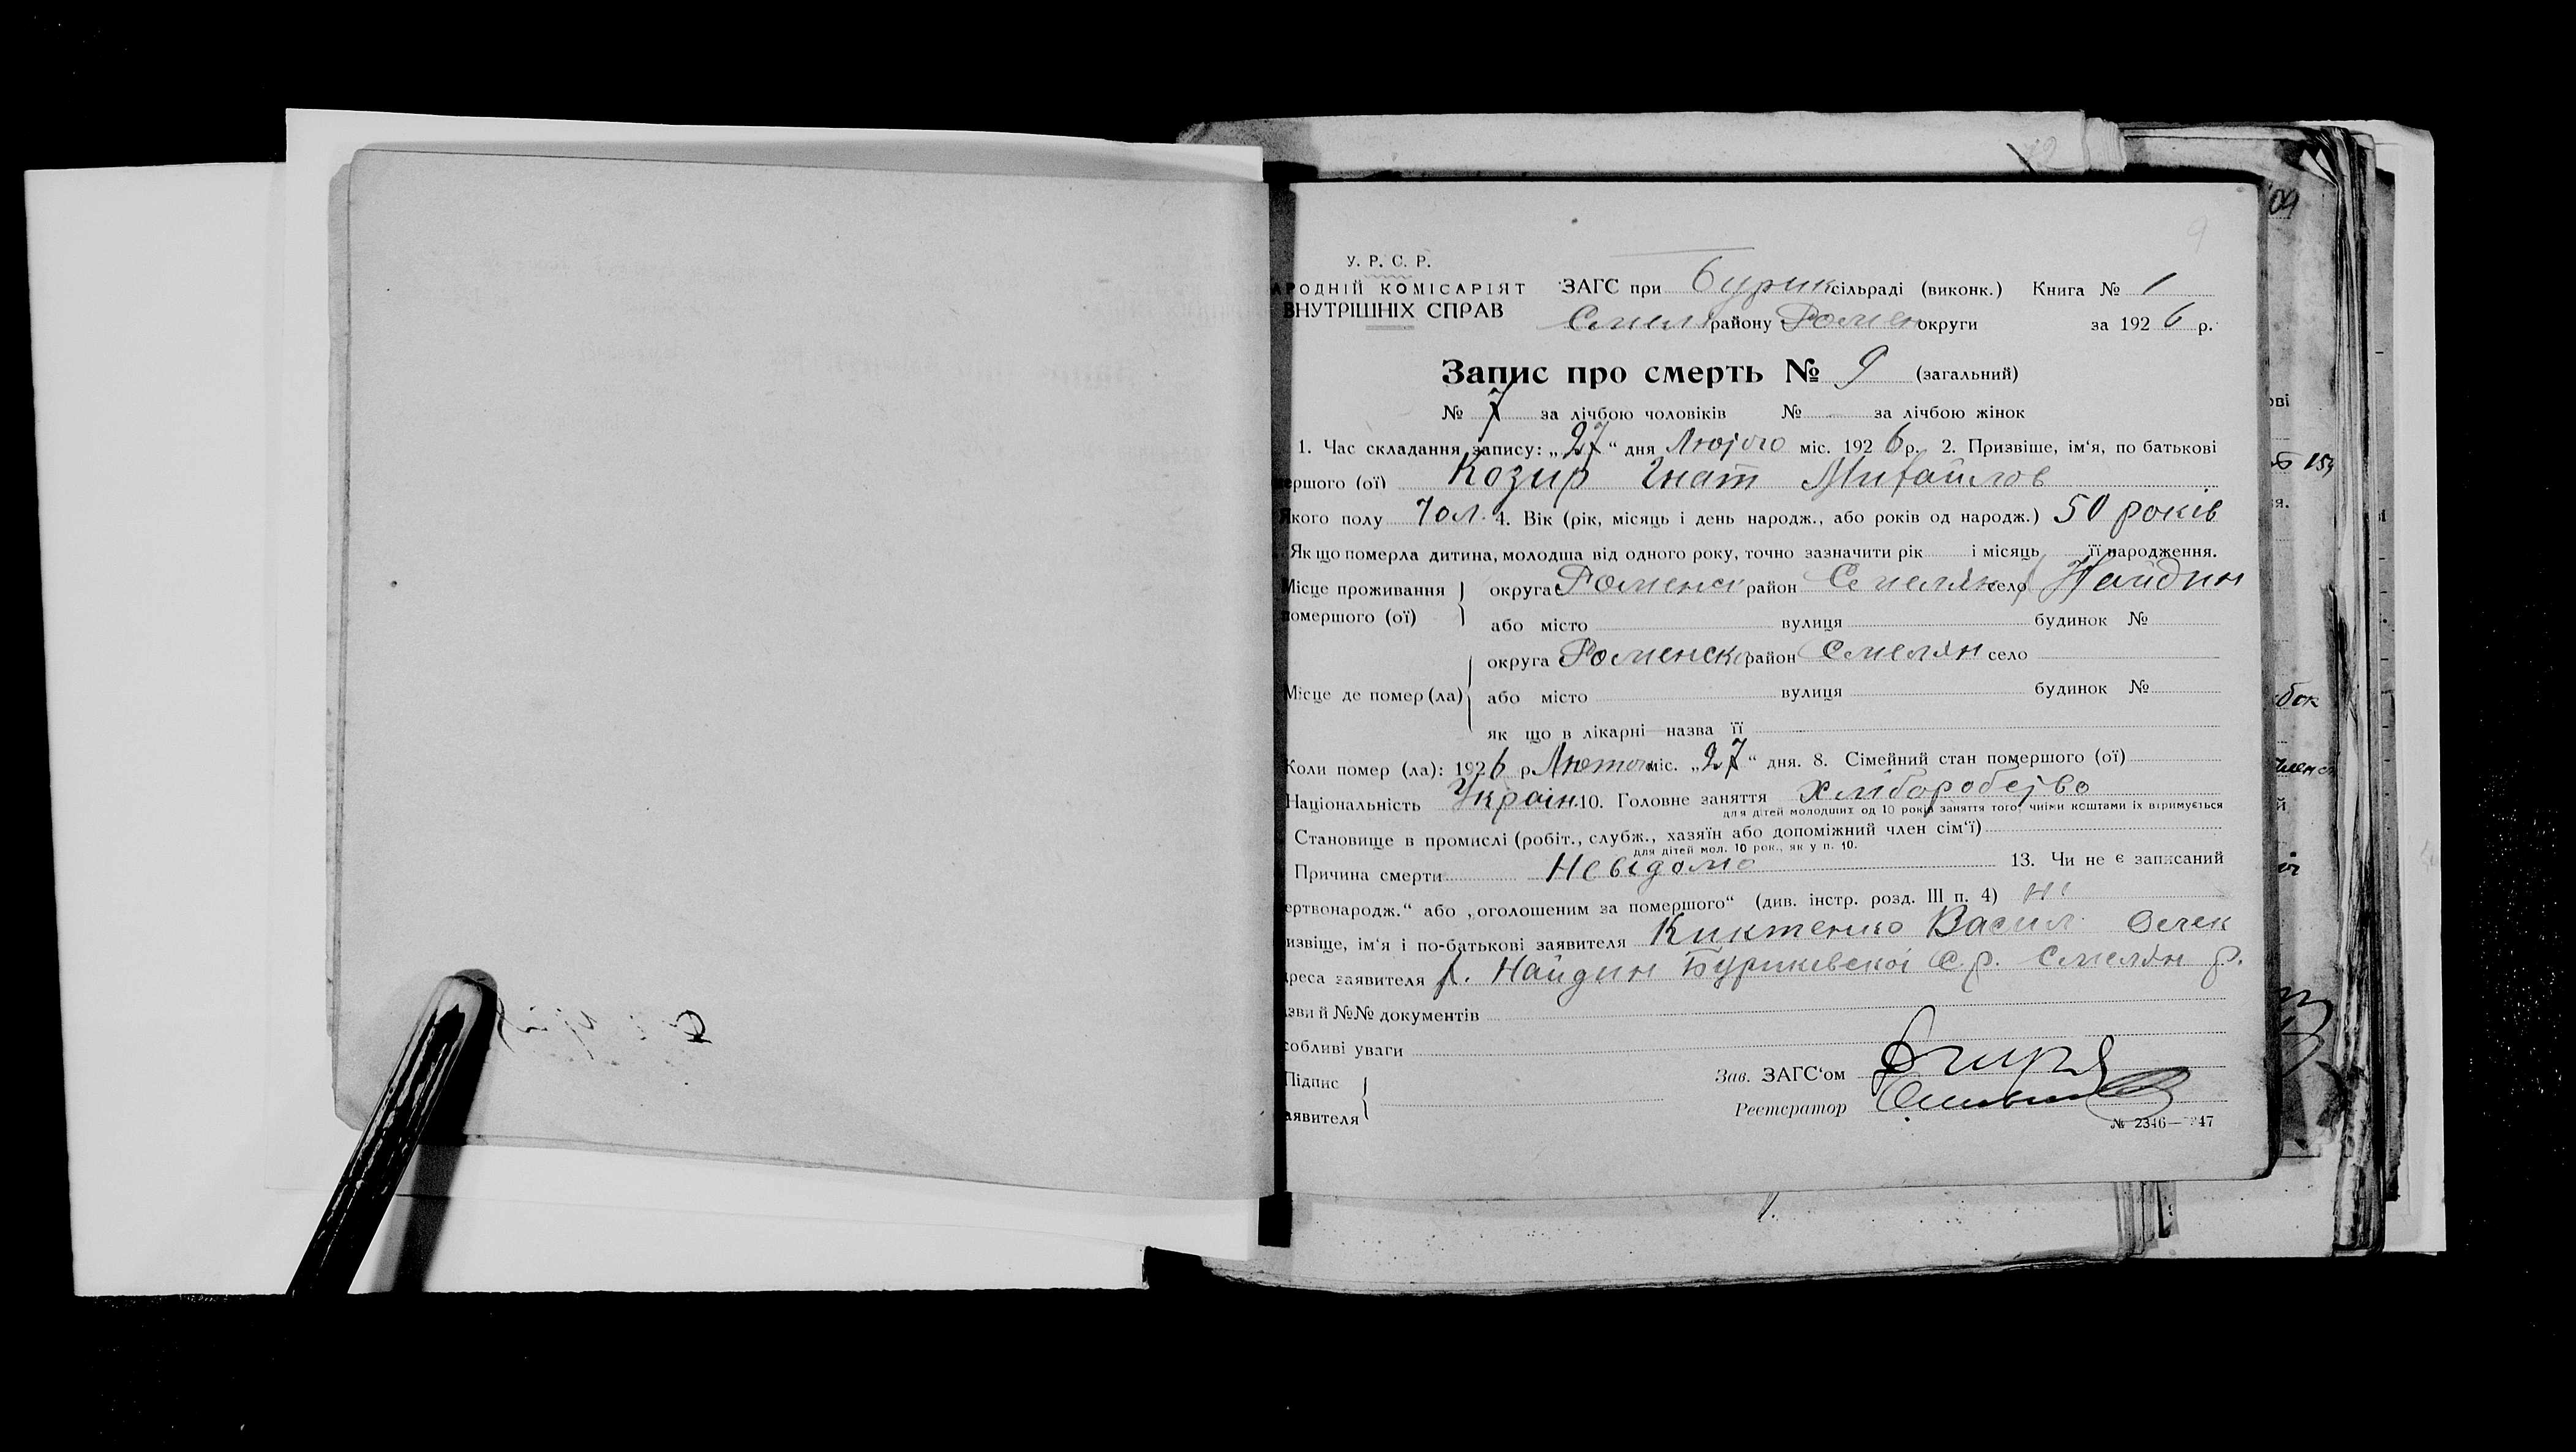 У. Р. С. Р.
АРОДНІЙ КОМІСАРІЯТ ЗАГС при Бурик сільраді (виконк.) Книга № 1
ВНУТРІШНІХ СПРАВ Смел району Ромен округи за 1926 р.
Запис про смерть № 9 (загальний)
№ 7 за лічбою чоловіків № за лічбою жінок
1. Час складання запису: „27“ дня Лютого міс. 1926 р. 2. Призвіще, ім‘я, по батькові
ершого (ої) Козир Гнат Михайлов
Якого полу Чол. 4. Вік (рік, місяць і день народж., або років од народж.) 50 років
Як що померла дитина, молодша від одного року, точно зазначити рік і місяць її народження.
Місце проживання округа Роменск район Смелян село Найдин
помершого (ої) або місто вулиця будинок №
округа Роменск район Смелян село
Місце де помер (ла) або місто вулиця будинок №
як що в лікарні назва її
Коли помер (ла): 1926 р Лютого міс. „27“ дня. 8. Сімейний стан помершого (ої)
Національність Україн. 10. Головне заняття Хліборобство
для дітей молодших од 10 років заняття того, чиїми коштами їх втримується
Становище в промислі (робіт., служб., хазяїн або допоміжний член сім‘ї)
для дітей мол. 10 рок., як у п. 10.
Причина смерти Невідомо 13. Чи не є записаний
ертвонародж.“ або „оголошеним за помершого“ (див. інстр. розд. III п. 4) ні
извіще, ім‘я і по-батькові заявителя Киктенко Васил
дреса заявителя х. Найдин Буриківскоі С.р. Смелян р.
азви й №№ документів
собливі уваги
Підпис
аявителя
Зав. ЗАГС‘ом
Реєстратор
№ 2346— 47